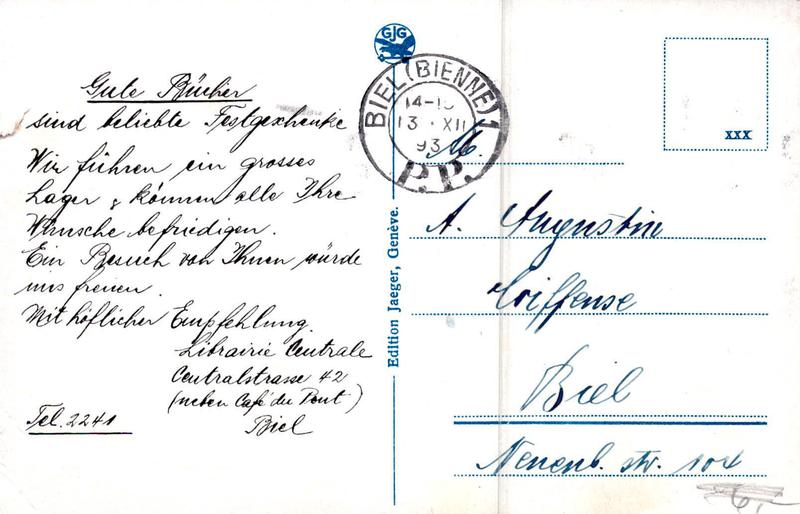 Gute Bücher
sind beliebte Festgeschenke
Wir führen ein grosses
Lager & können alle Ihre
Wünsche befriedigen.
Ein Besuch von Ihnen würde
uns freuen.
Mit höflicher Empfehlung.
Librairie Centrale
Centralstrasse 42
(neben Café du Pont)
Tel. 2241
Biel
GJG
Edition Jaeger, Genève.
BIEL (BIENNE) 1
13 XII
93
P.P.
xxx
M.
A. Augustin
Coiffeuse
Biel
Neuenb. str. 104